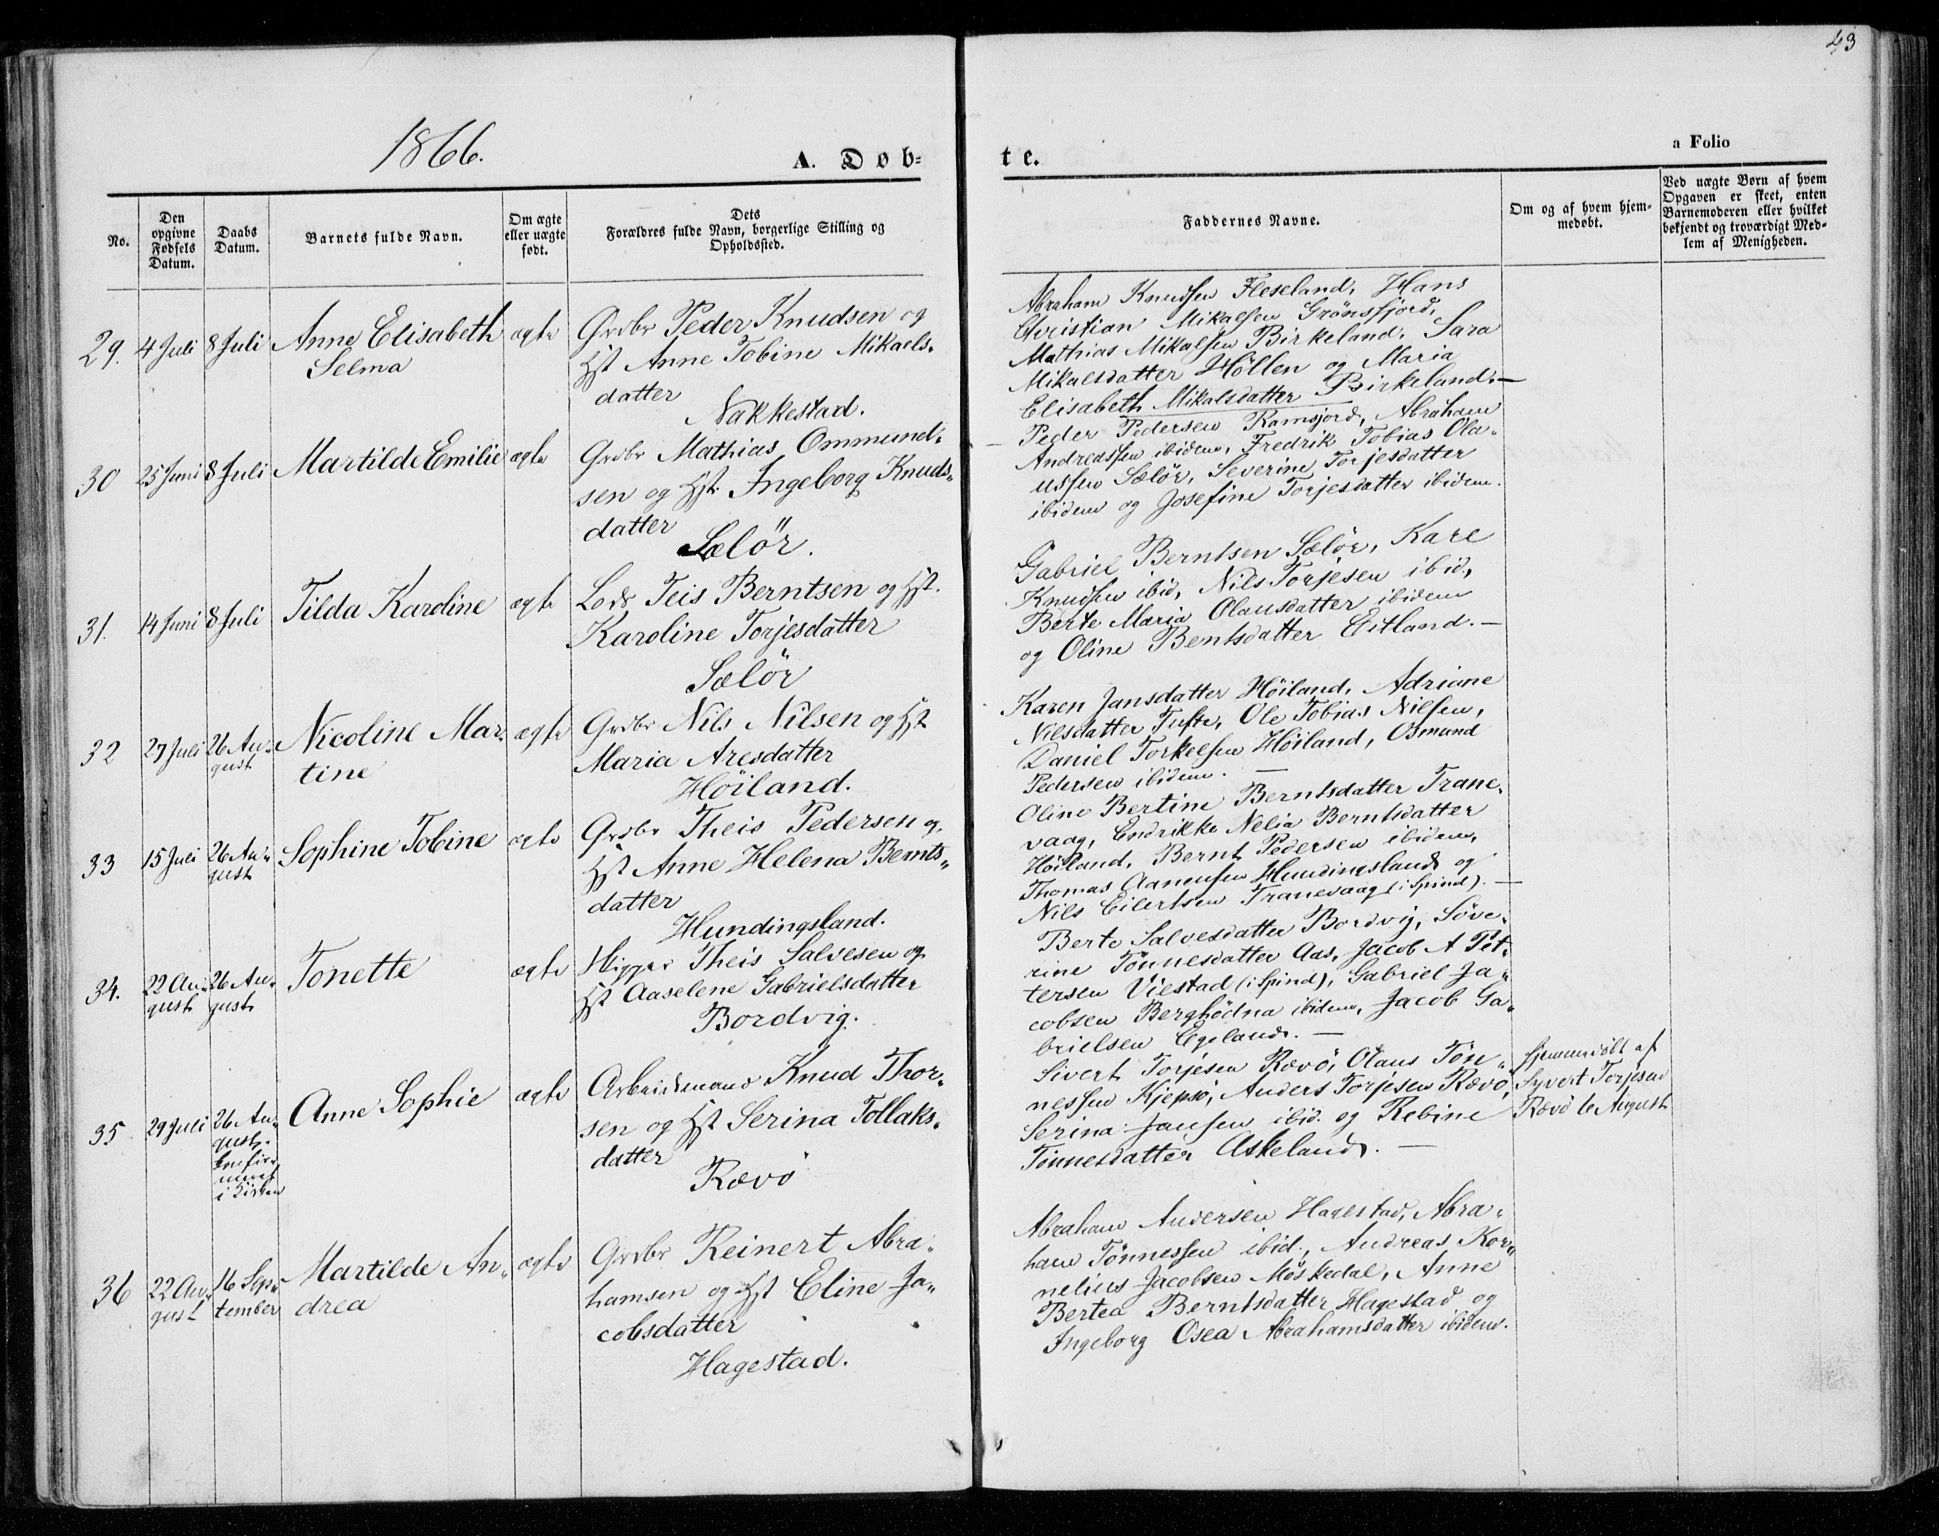 43
1866.
A. Døb-
te.
a Folio
No.
Den
opgivne
Fødsels
Datum.
Daabs
Datum.
Barnets fulde Navn.
Om ægte
eller uægte
født.
Dets
Forældres fulde Navn, borgerlige Stilling og
Opholdssted.
Faddernes Navne.
Om og af hvem hjem-
medøbt.
Ved uægte Børn af hvem
Opgaven er skeet, enten
Barnemoderen eller hvilket
bekjendt og troværdigt Med-
lem af Menigheden.
29. 4 Juli 8 Juli Anne Elisabeth ægte Grdbr Peder Knudsen og
Selma Hst Anne Tobine Mikaels-
datter
Nakkestad.
Abraham Knudsen Fleseland, Hans
Christian Mikalsen Grönsfjord,
Mathias Mikalsen Birkeland, Sara
Mikalsdatter Höllen og Maria
Elisabeth Mikalsdatter Birkeland. —
30 25 Juni 8 Juli Martilde Emilie ægte Grdbr Mathias Ommund-
sen og Hst. Ingeborg Knuds-
datter
Sælör.
Peder Pedersen Ramsjord, Abraham
Andreassen ibidem, Fredrik Tobias Ola-
ussen Sælör, Severine Torjesdatter
ibidem og Josefine Torjesdatter ibidem.
31. 14 Juni 8 Juli Tilda Karoline ægte Lods Teis Berntsen og Hst.
Karoline Torjesdatter
Sælör
Gabriel Berntsen Sælör, Kare
Knudsen ibid, Nils Torjesen ibid,
Berte Maria Olausdatter ibidem
og Oline Bentsdatter Eitland. —
32 27 Juli 26 Au- Nicoline Mar- ægte Grdbr Nils Nilsen og Hst
gust tine Maria Aresdatter
Höiland.
Karen Jansdatter Höiland, Adriane
Nilsdatter Tufte, Ole Tobias Nilsen,
Daniel Torkelsen Höiland, Osmund
Pedersen ibidem. —
33 15 Juli 26 Au- Sophine Tobine ægte Grdbr Theis Pedersen og
gust Hst Anne Helena Bernts-
datter
Hundingsland.
Oline Bertine Berntsdatter Trane-
vaag, Endrikke Nelia Berntsdatter
Höiland, Bernt Pedersen ibidem,
Thomas Aanensen Hundingsland og
Nils Eilertsen Tranevaag (i Spind). —
34. 22 Au- 26 Au- Tonette ægte Theis Salvesen og
gust gust Hst Aaselene Gabrielsdatter
Bordvig.
Berte Salvesdatter Bordvig, Söve-
rine Tönnesdatter Aas, Jacob A Pet-
tersen Viestad (i Spind), Gabriel Ja-
cobsen Berghödna ibidem, Jacob Ga-
brielsen Egeland. —
35. 29 Juli 26 Au- Anne Sophie ægte Arbeidsmand Knud Thor-
gust. sen og Hst Serina Tollaks-
datter
i Kirken Rævö
Sivert Torjesen Rævö, Olaus Tön-
nessen Kjepsö, Anders Torjesen Rævö,
Serina Jansen ibid. og Rebine
Tönnesdatter Askeland. —
Hjemmedöbt af
Syvert Torjesen
Rævö 6 August
36 22 Au- 16 Sep- Martilde An- ægte Grdbr Reinert Abra-
gust tember drea hamsen og Hst Eline Ja-
cobsdatter
Hagestad.
Abraham Andersen Hagestad, Abra-
ham Tönnessen ibid., Andreas Kor-
nelius Jacobsen Möskedal, Anne
Bertea Berntsdatter Hagestad og
Ingeborg Osea Abrahamsdatter ibidem.